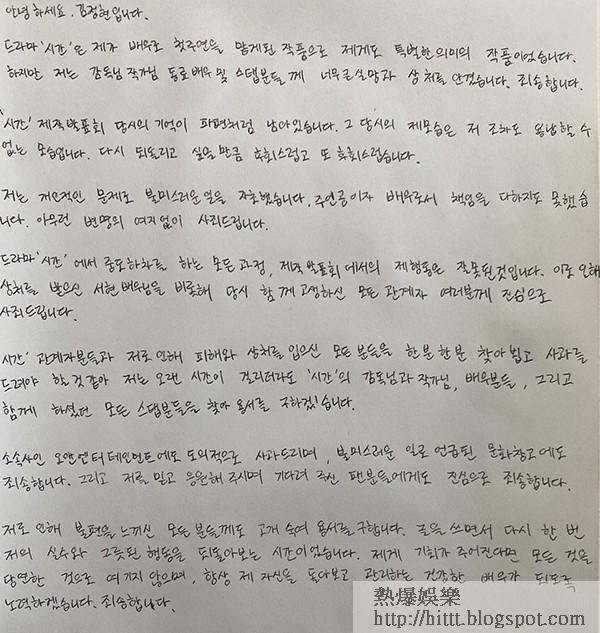 안녕하세요. 김정현입니다.
드라마 '시간'은 제가 배우로 첫주연을 맡게된 작품으로 제게도 특별한 의미의 작품이었습니다.
하지만 저는 감독님 작가님 동료배우 및 스탭분들께 너무 큰 실망과 상처를 안겼습니다. 죄송합니다.
'시간' 제작발표회 당시의 기억이 파편처럼 남아있습니다. 그 당시의 제모습은 저 조차도 용납할 수
없는 모습입니다. 다시 되돌리고 싶을만큼 후회스럽고 또 후회스럽습니다.
저는 개인적인 문제로 불미스러운 일을 자초했습니다. 주인공이자 배우로서 책임을 다하지도 못했습
니다. 아무런 변명의 여지 없이 사죄드립니다.
드라마 '시간'에서 중도하차를 하는 모든 과정, 제작발표회에서의 제행동은 잘못된 것입니다. 이로 인해
상처를 받으신 서현 배우님을 비롯해 당시 함께 고생하신 모든 관계자 여러분께 진심으로
사죄드립니다.
시간' 관계자분들과 저로 인해 피해와 상처를 입으신 모든 분들을 한분 한분 찾아 뵙고 사과를
드려야 할 것 같아 저는 오랜 시간이 걸리더라도 '시간'의 감독님과 작가님, 배우분들, 그리고
함께 하셨던 모든 스탭분들을 찾아 용서를 구하겠습니다.
소속사인 오앤엔터테인먼트에도 도의적으로 사과드리며, 불미스러운 일로 언급된 문화창고에도
죄송합니다. 그리고 저를 믿고 응원해 주시며 기다려 주신 팬분들에게도 진심으로 죄송합니다.
저로 인해 불편을 느끼신 모든 분들께도 고개 숙여 용서를 구합니다. 글을 쓰면서 다시 한 번
저의 실수와 그릇된 행동을 되돌아보는 시간이었습니다. 제게 기회가 주어진다면 모든 것을
당연한 것으로 여기지 않으며, 항상 제 자신을 돌아보고 관리하는 건강한 배우가 되도록
노력하겠습니다. 죄송합니다.
熱爆娛樂
http://hittt.blogspot.com